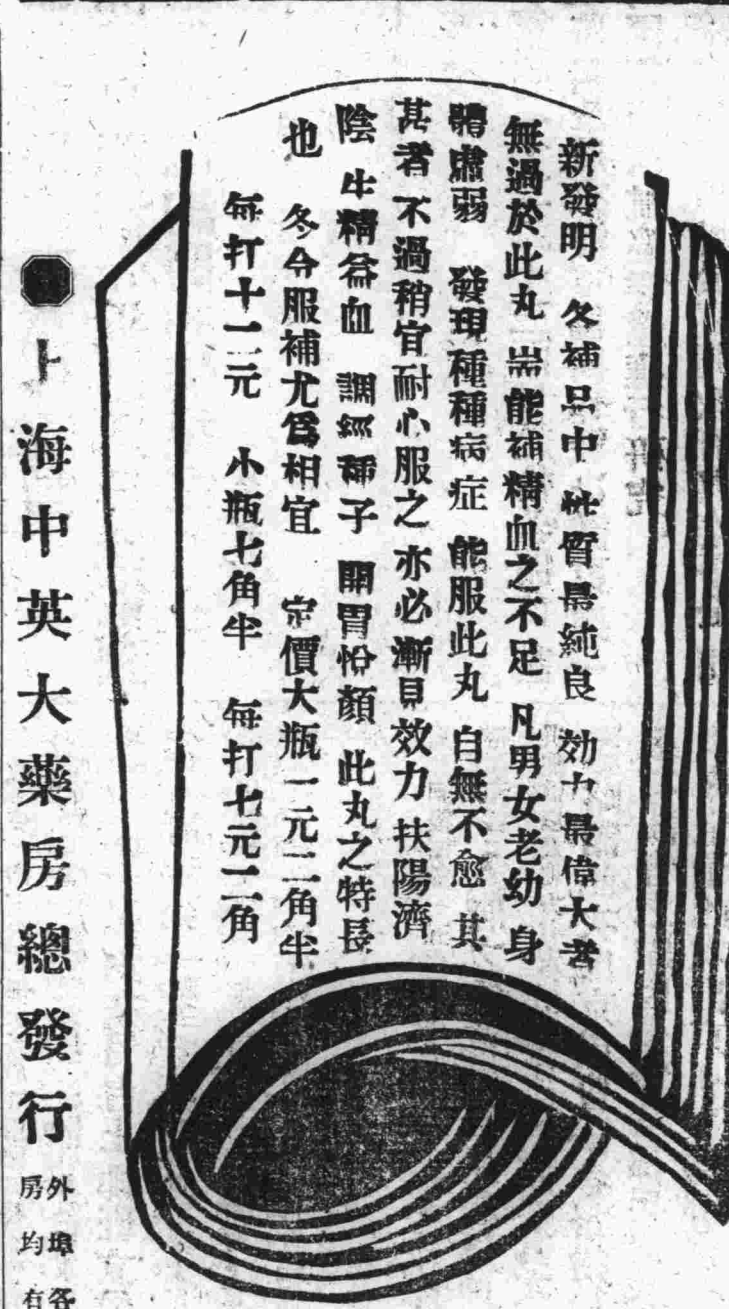 新發明 各補品中 性質最純良 効力最偉大者
無過於此丸 耑能補精血之不足 凡男女老幼 身
體虛弱 發現種種病症 能服此丸 自無不愈 其
甚者 不過稍宜耐心服之 亦必漸見效力 扶陽濟
陰 生精益血 調經種子 開胃怡顏 此丸之特長
也 冬令服補尤爲相宜 定價大瓶一元二角半
每打十二元 小瓶七角半 每打七元二角
上海中英大藥房總發行
外埠各
房均有